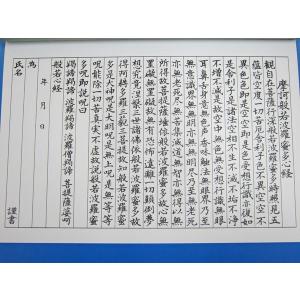 摩訶般若波羅蜜多心経
観自在菩薩行深般若波羅蜜多時照見五
蘊皆空度一切苦厄舎利子色不異空空不
異色色即是空空即是色受想行識亦復如
是舎利子是諸法空相不生不滅不垢不浄
不増不減是故空中無色無受想行識無眼
耳鼻舌身意無色声香味触法無眼界乃至
無意識界無無明亦無無明尽乃至無老死
亦無老死尽無苦集滅道無智亦無得以無
所得故菩提薩埵依般若波羅蜜多故心無
罣礙無罣礙故無有恐怖遠離一切顛倒夢
想究竟涅槃三世諸佛依般若波羅蜜多故
得阿耨多羅三藐三菩提故知般若波羅蜜
多是大神呪是大明呪是無上呪是無等等
呪能除一切苦真実不虚故説般若波羅蜜
多呪即説呪曰
羯諦羯諦 波羅羯諦 波羅僧羯諦 菩提薩婆訶
般若心経
為
年 月 日
氏名 謹書